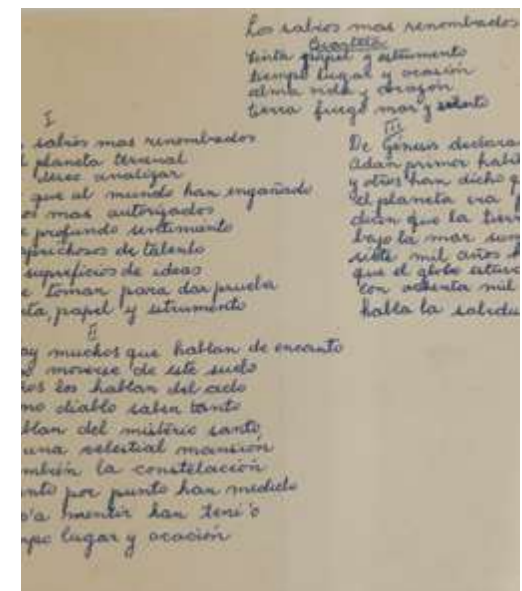 Los sabios mas renombrados
Cuarteta
tinta papel y istrumento
tiempo lugar y ocasión
alma vida y corazón
tierra fuego mar y
I
sabios mas renombrados
planeta terrenal
deseo analizar
que al mundo han engañado
mas autorizados
profundo sentimiento
caprichosos de talento
de ideas
tomar para dar prueba
papel y istrumento
II
muchos que hablan de encanto
moverse de este suelo
los hablan del cielo
diablo saben tanto
del misterio santo
una celestial mansión
la constelación
por punto han medido
mentir han teni'o
lugar y ocasión
III
De Génesis
Adán primer
y otros han dicho
el planeta era
dicen que la
bajo la mar
siete mil años
que el globo
con ochenta mil
habla la